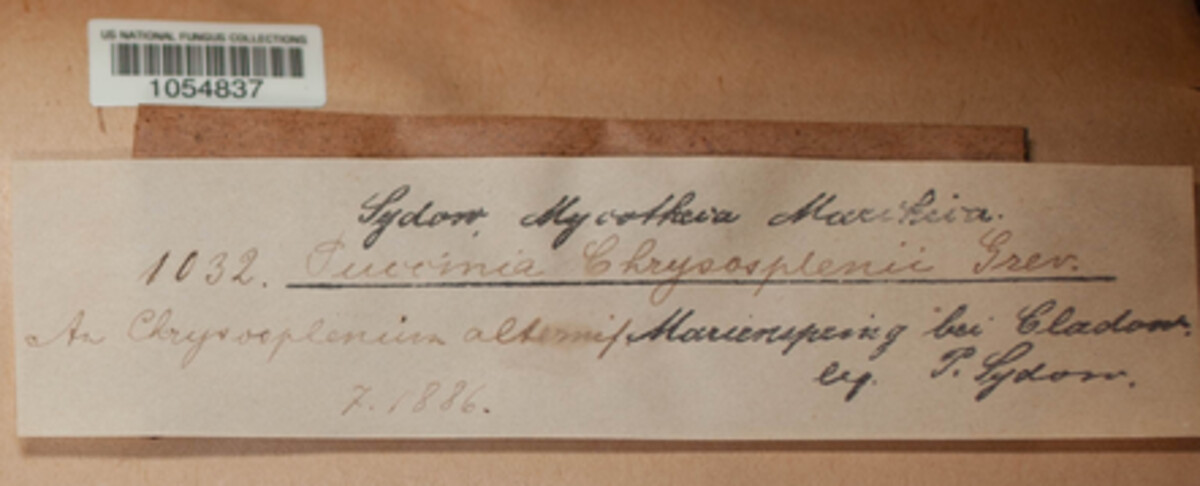 US NATIONAL FUNGUS COLLECTIONS
1054837
Sydow, Mycotheca Marchica.
1032. Puccinia Chrysosplenii Grev.
An Chrysosplenium alternif. Marienspring bei Cladow.
leg. P. Sydow.
7. 1886.